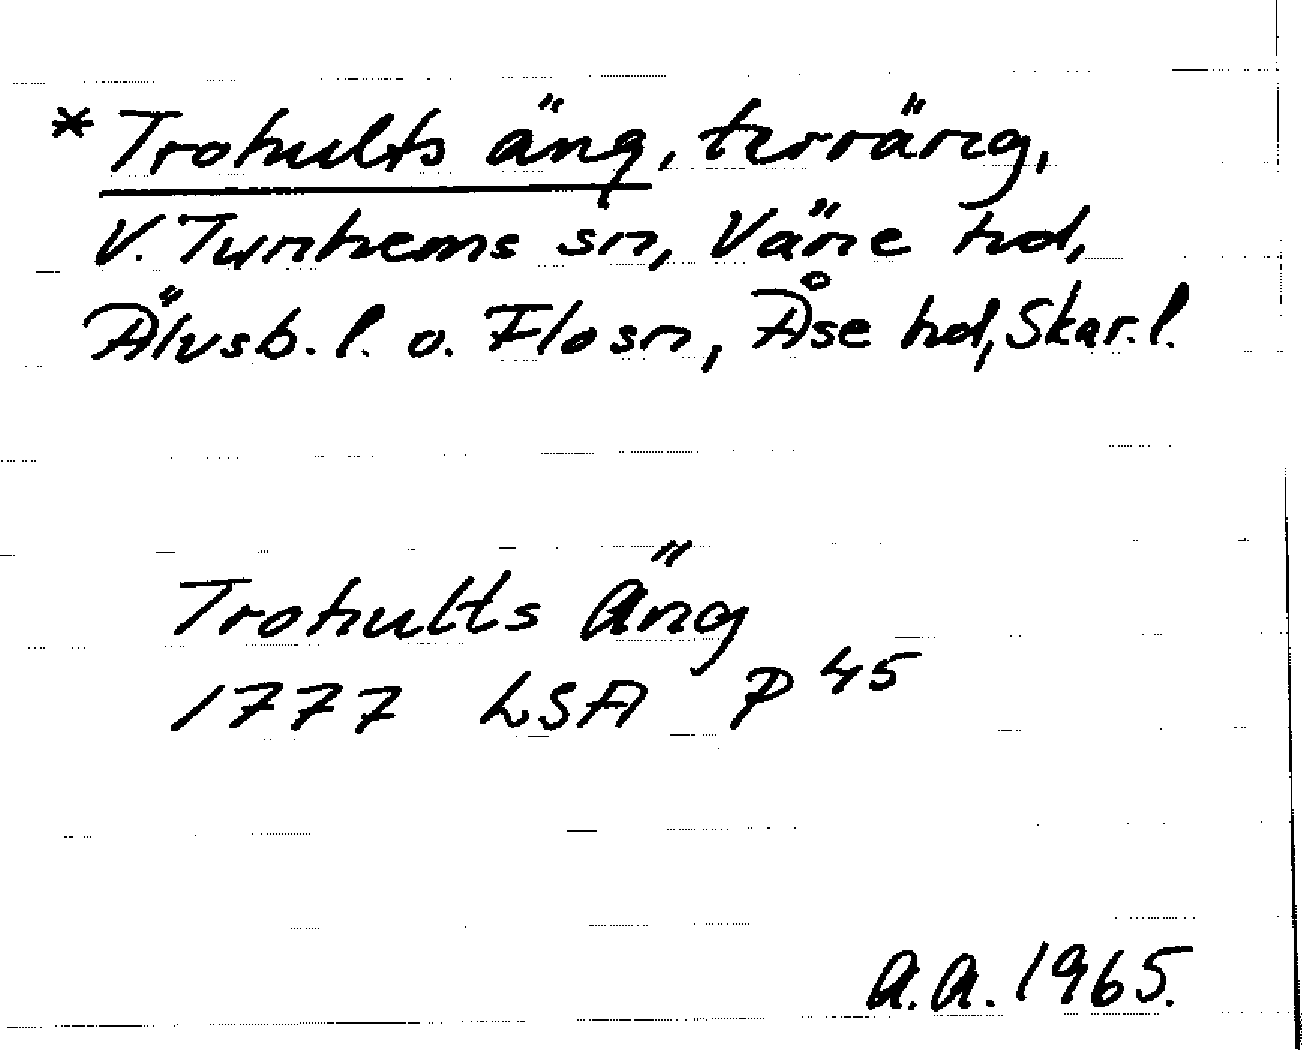 * Trohults äng, terräng,
V. Tunhems sn, Väne hd,
Älvsb. l. o. Flo sn, Åse hd, Skar. l.
Trohults Äng
1777 LSA P 45
A.A. 1965.